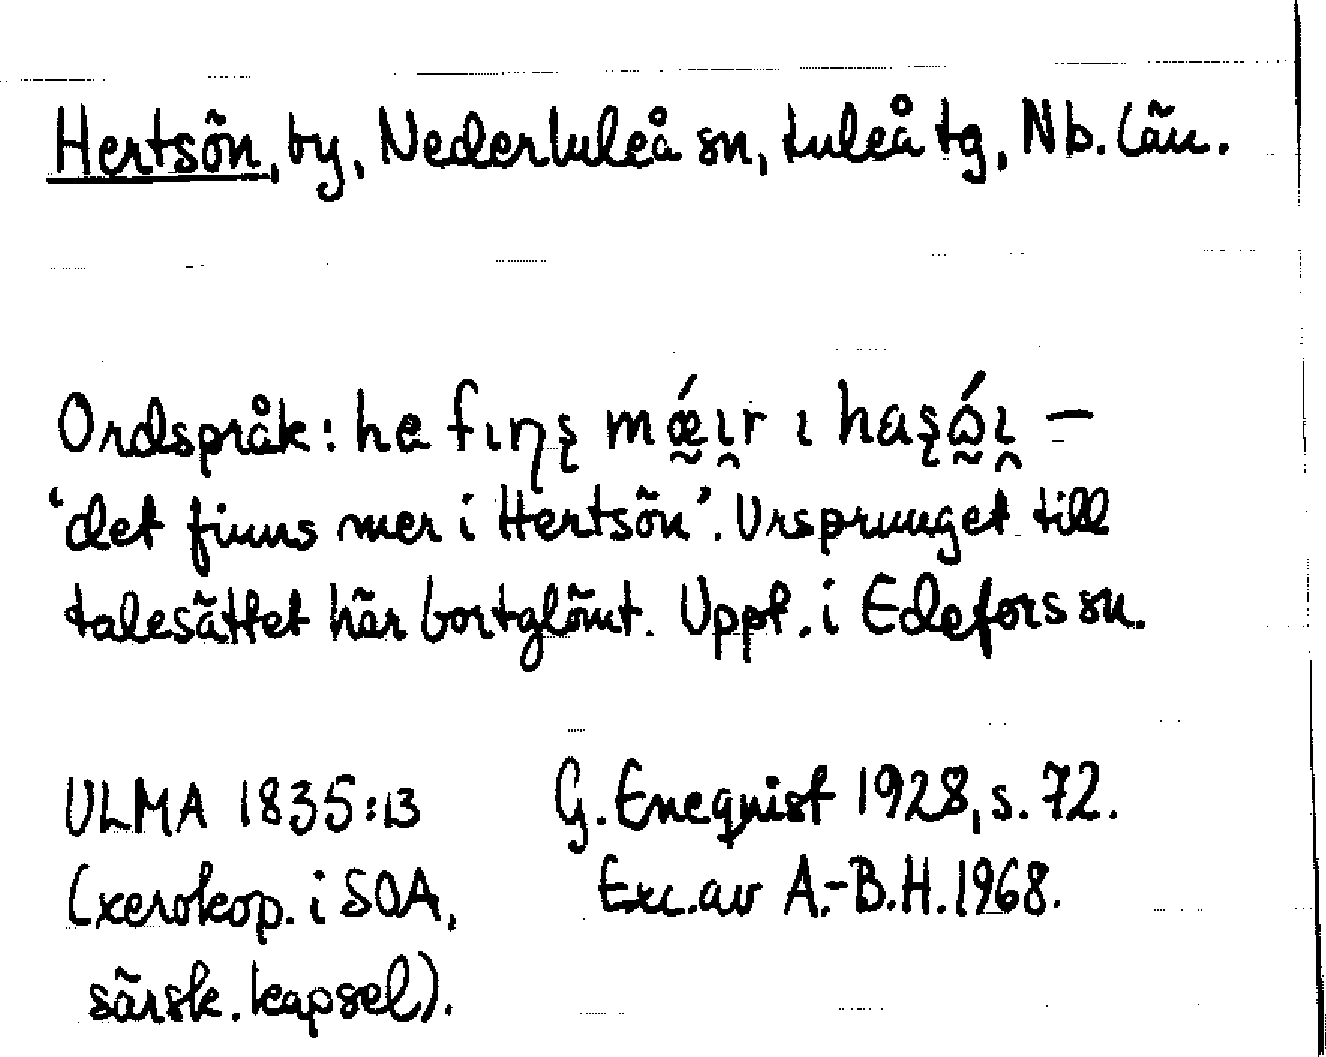 Hertsön, by, Nederluleå sn, Luleå tg, Nb. län.
Ordspråk: he fıƞş mǽ̰ı̯r ı haşɷ̰́ı̯ —
‘det finns mer i Hertsön’. Ursprunget till
talesättet här bortglömt. Uppt. i Edefors sn.
ULMA 1835:13
(xerokop. i SOA,
särsk. kapsel).
G. Enequist 1928, s. 72.
Exc. av A.-B.H. 1968.